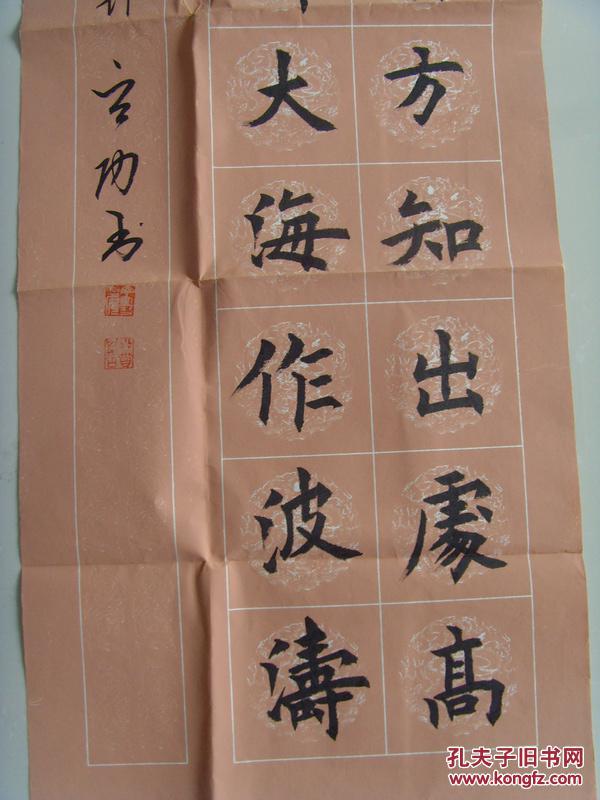 方知出處高
大海作波濤
功書
孔夫子旧书网
www.kongfz.com